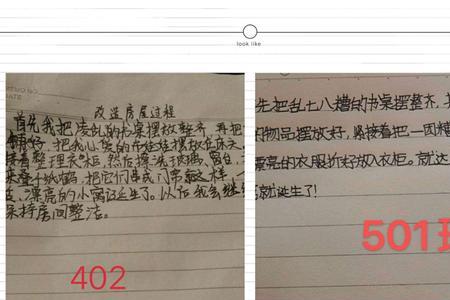 look like
改造房屋过程
首先我把凌乱的书桌摆放整齐,再把
铺好,把我心爱的布娃娃摆放在床头,
接着整理衣柜,然后擦洗玻璃、窗台,
来叠千纸鹤,把它们串成门帘
,漂亮的小窝诞生了。以后我会继续
保持房间整洁。
402
先把乱七八糟的书桌摆整齐,
物品摆放好,紧接着把一团糟
漂亮的衣服折好放入衣柜。就这
就诞生了!
501班